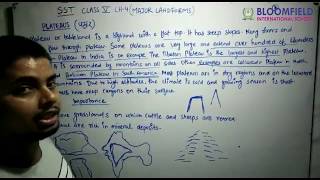 SST CLASS V CH-4 (MAJOR LANDFORMS)
BLOOMFIELD
INTERNATIONAL SCHOOL
PLATEAUS
Plateau or tableland is a highland with a flat top. It has steep slopes. Many rivers and
flow through plateau. Some plateaus are very large and extend over hundred of kilometers
Plateau in India is an example. The Tibetan Plateau is the largest and highest Plateau
It is surrounded by mountains on all sides. Other examples are
Bolivian Plateau in South America. Most plateaus are in dry regions and on the leeward
Due to high altitudes, the climate is cold and growing season is short
have deep canyons on their surface
Importance
grasslands on which cattle and sheeps are reared
are rich in mineral deposits.